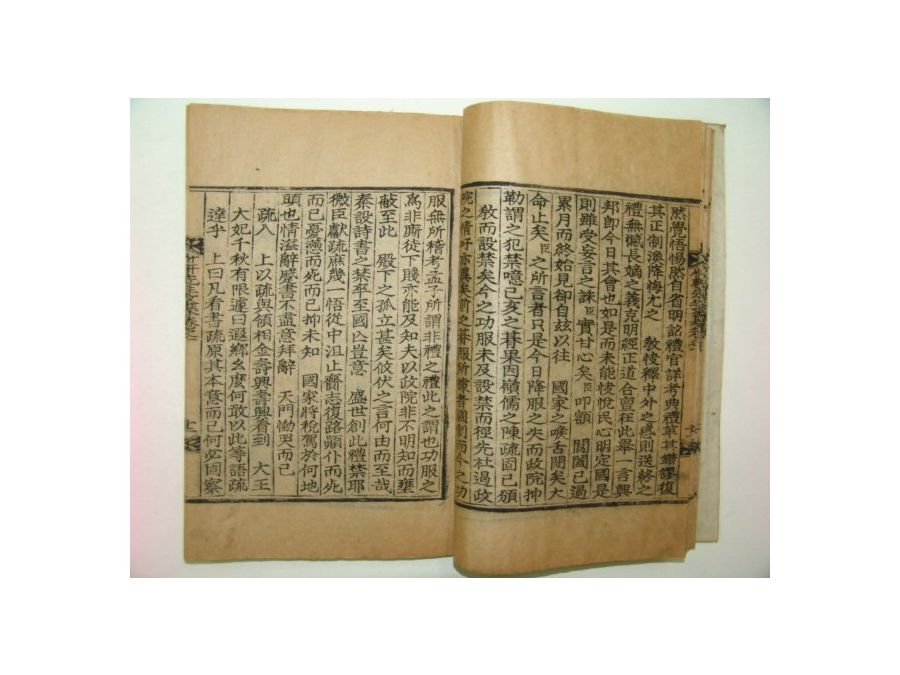 然覺悟惕然自省明詔禮官詳考典禮革其鄙謬復
其正制渙降悔尤之　教悛釋中外之惑則送終之
禮無憾長嫡之義克明經正道合亶在此擧一言興
邦卽今日其會也如是而未能悛悅民心明定國是
則雖受妄言之誅臣實甘心矣臣叩額　閶闔已過
累月而終始見卻自玆以往　國家之喉舌閉矣大
命止矣臣之所言者只是今日降服之失而政院抑
勒謂之犯禁噫己亥之朞果因嶺儒之陳疏啚已頒
敎而設禁矣今之功服未及設禁而徑先杜遏政
院之情好亦異矣前之朞服所憲者國制而今之功
服無所稽考孟子所謂非禮之禮此之謂也功服之
爲非廝徒下賤亦能及知夫以政院非不明知而壅
蔽至此　殿下之孤立甚矣攸伏之言何由而至哉
秦設詩書之禁卒至國亾豈意　盛世創此禮禁耶
微臣獻疏庶幾一悟從中沮止齎志復路顚仆而死
而已憂懣而死而已抑未知　國家將稅駕於何地
頭也情溢辭蹙書不盡意拜辭　天門慟哭而已
疏入　上以疏與領相金壽興壽興看到　大王
大妃千秋有限遽曰遐鄕幺麽何敢以此等語疏
達乎　上曰凡看書疏原其本意而已何必固察